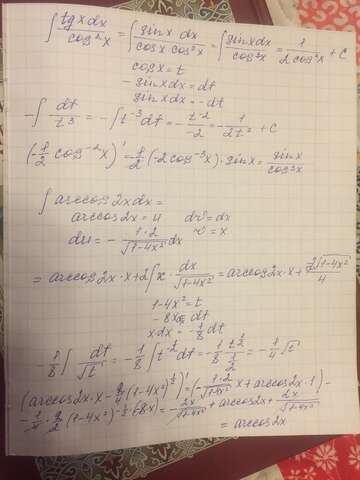 ∫ tgxdx/cos²x = ∫ sinx dx/cosx cos²x = ∫ sinxdx/cos³x = 1/2cos²x + C
cosx = t
- sinxdx = dt
sinxdx = -dt
-∫ dt/t³ = -∫ t⁻³dt = - t⁻²/-2 = - 1/2t² + C
(-1/2 cos⁻²x)' = 1/2 (-2cos⁻³x)·sinx = sinx/cos³x
∫ arccos2xdx =
arccos2x = u dv = dx
du = - 1·2/√1-4x² dx v = x
= arccos2x·x + 2∫x· dx/√1-4x² = arccos2x·x + 2√1-4x²/4
1-4x² = t
-8x = dt
xdx = -1/8 dt
-1/8 ∫ dt/√t = -1/8 ∫ t^-1/2 dt = -1/8 · t^1/2 / 1/2 = -1/4 √t
(arccos2x·x - 2/4 (1-4x²)^1/2)' = (- 1·2/√1-4x² x + arccos2x·1) -
- 1/4 · 2/2 (1-4x²)^-1/2 · (-8x) = - 2x/√1-4x² + arccos2x + 2x/√1-4x²
= arccos2x